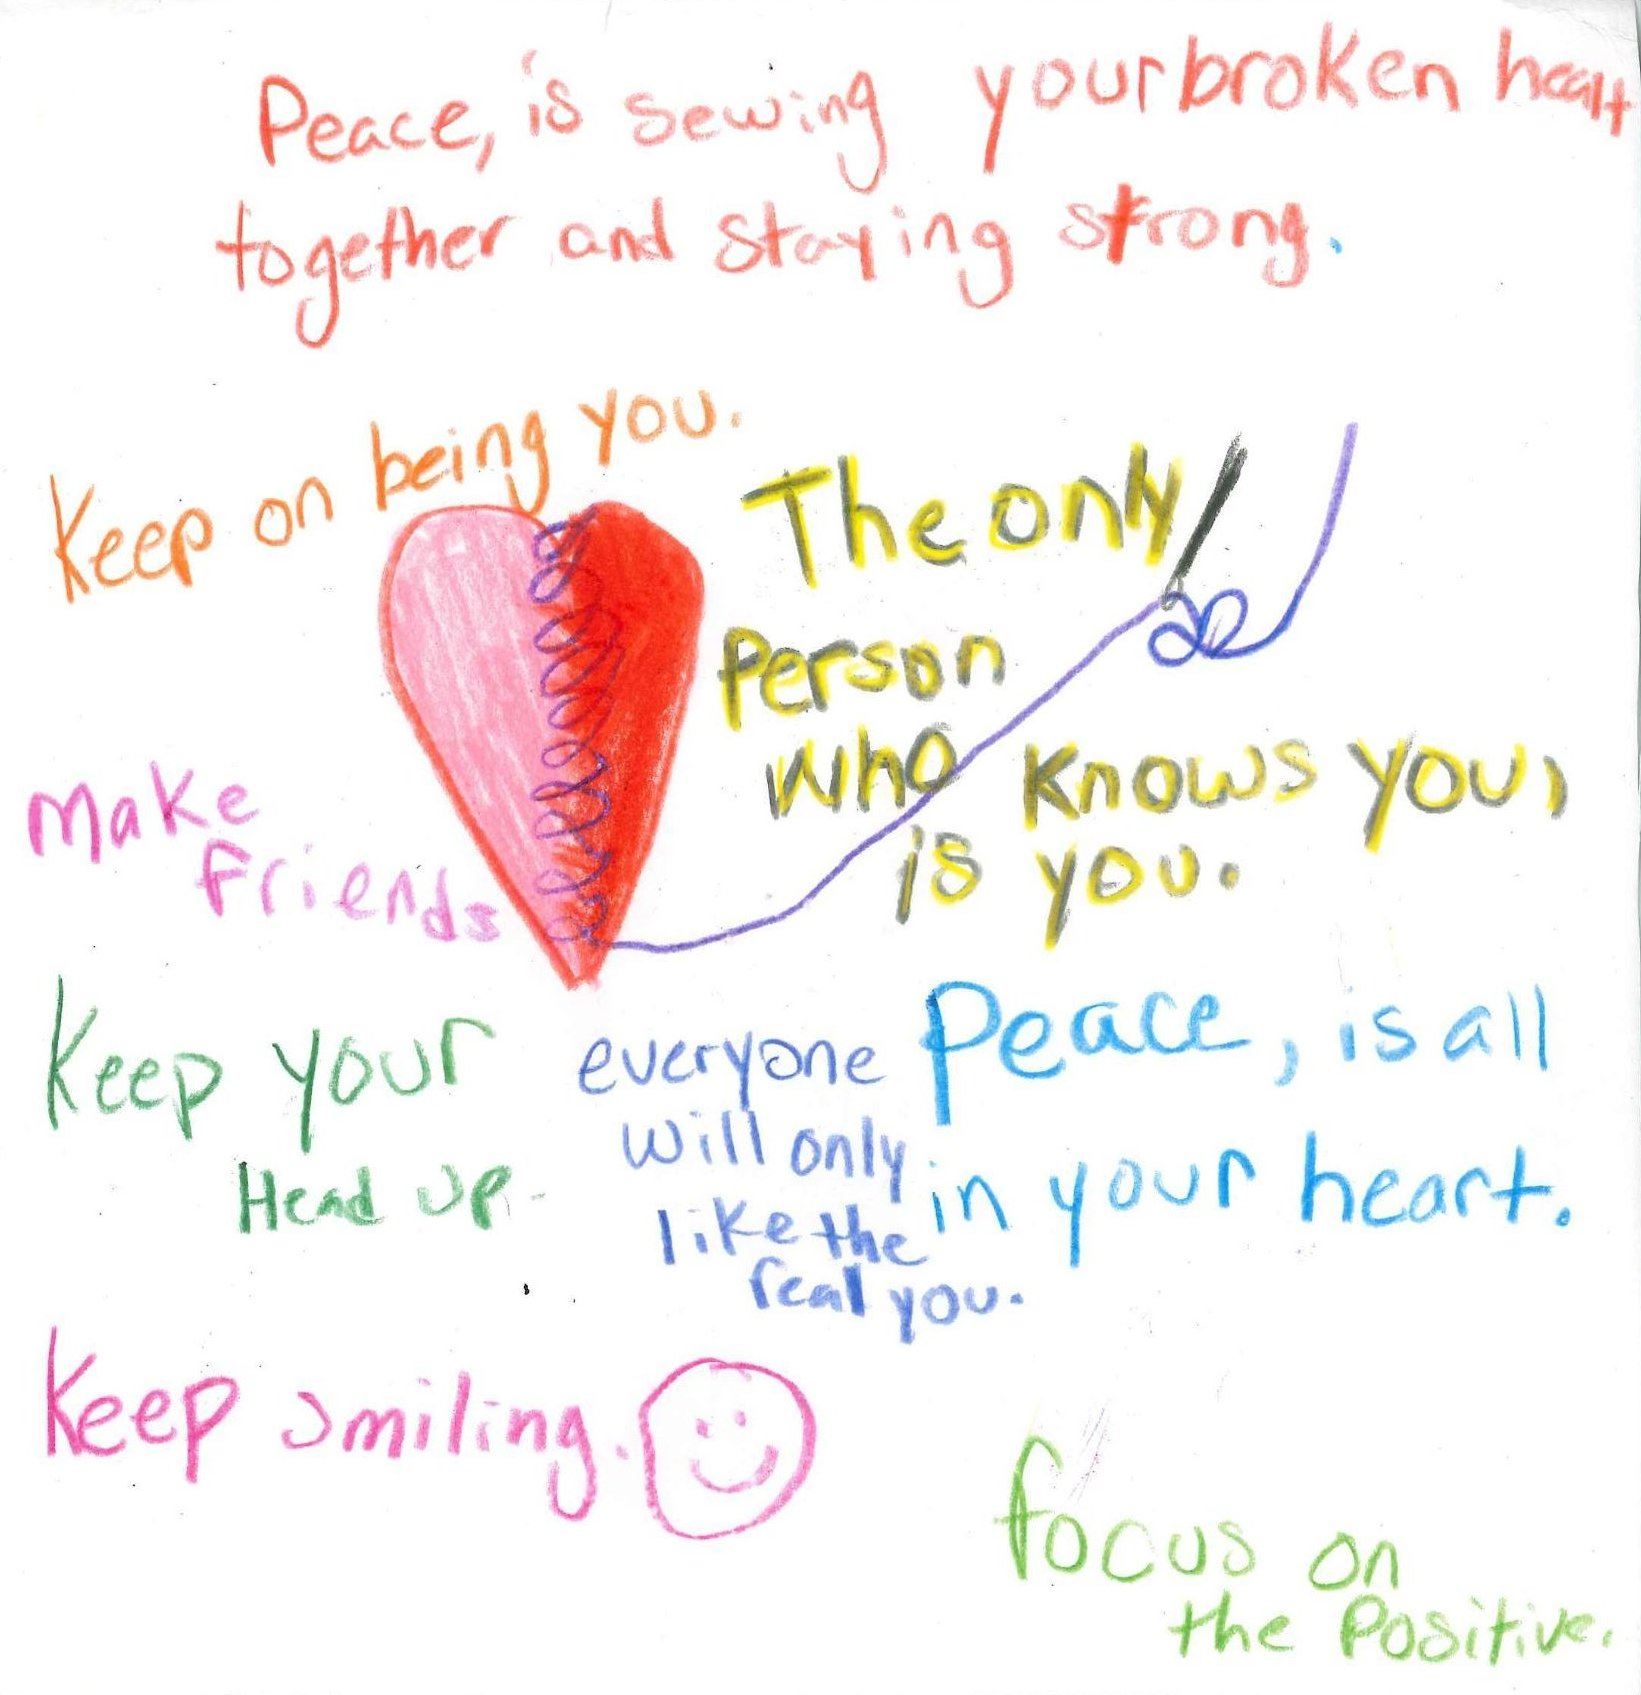 Peace, is sewing your broken heart
together and staying strong.
Keep on being you.
The only
Person
who knows you,
is you.
Make
Friends
Keep your
Head up.
everyone
will only
like the
real you.
Peace, is all
in your heart.
Keep smiling.
focus on
the Positive.